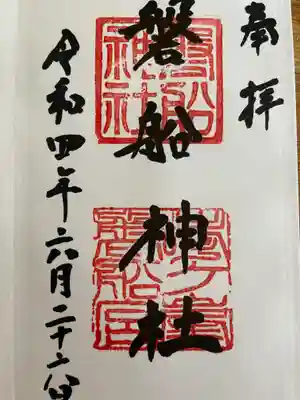 奉拝
磐船神社
令和四年六月二十六日